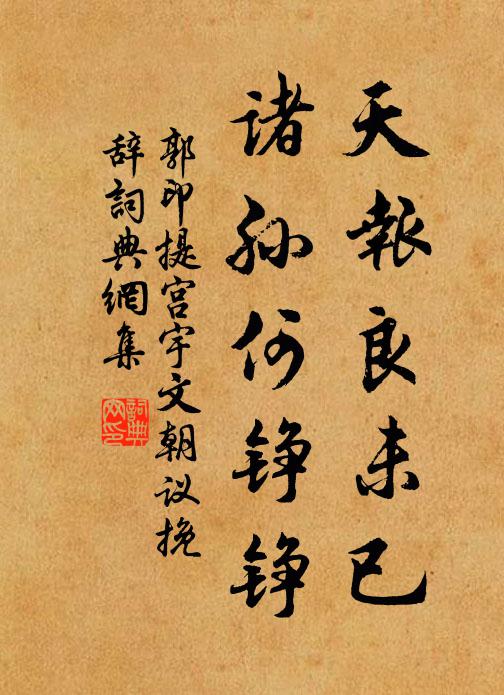 天報良未已
诸孙何铮铮
郭印提宫宇文朝议挽
辞詞典網集
詞典
网印